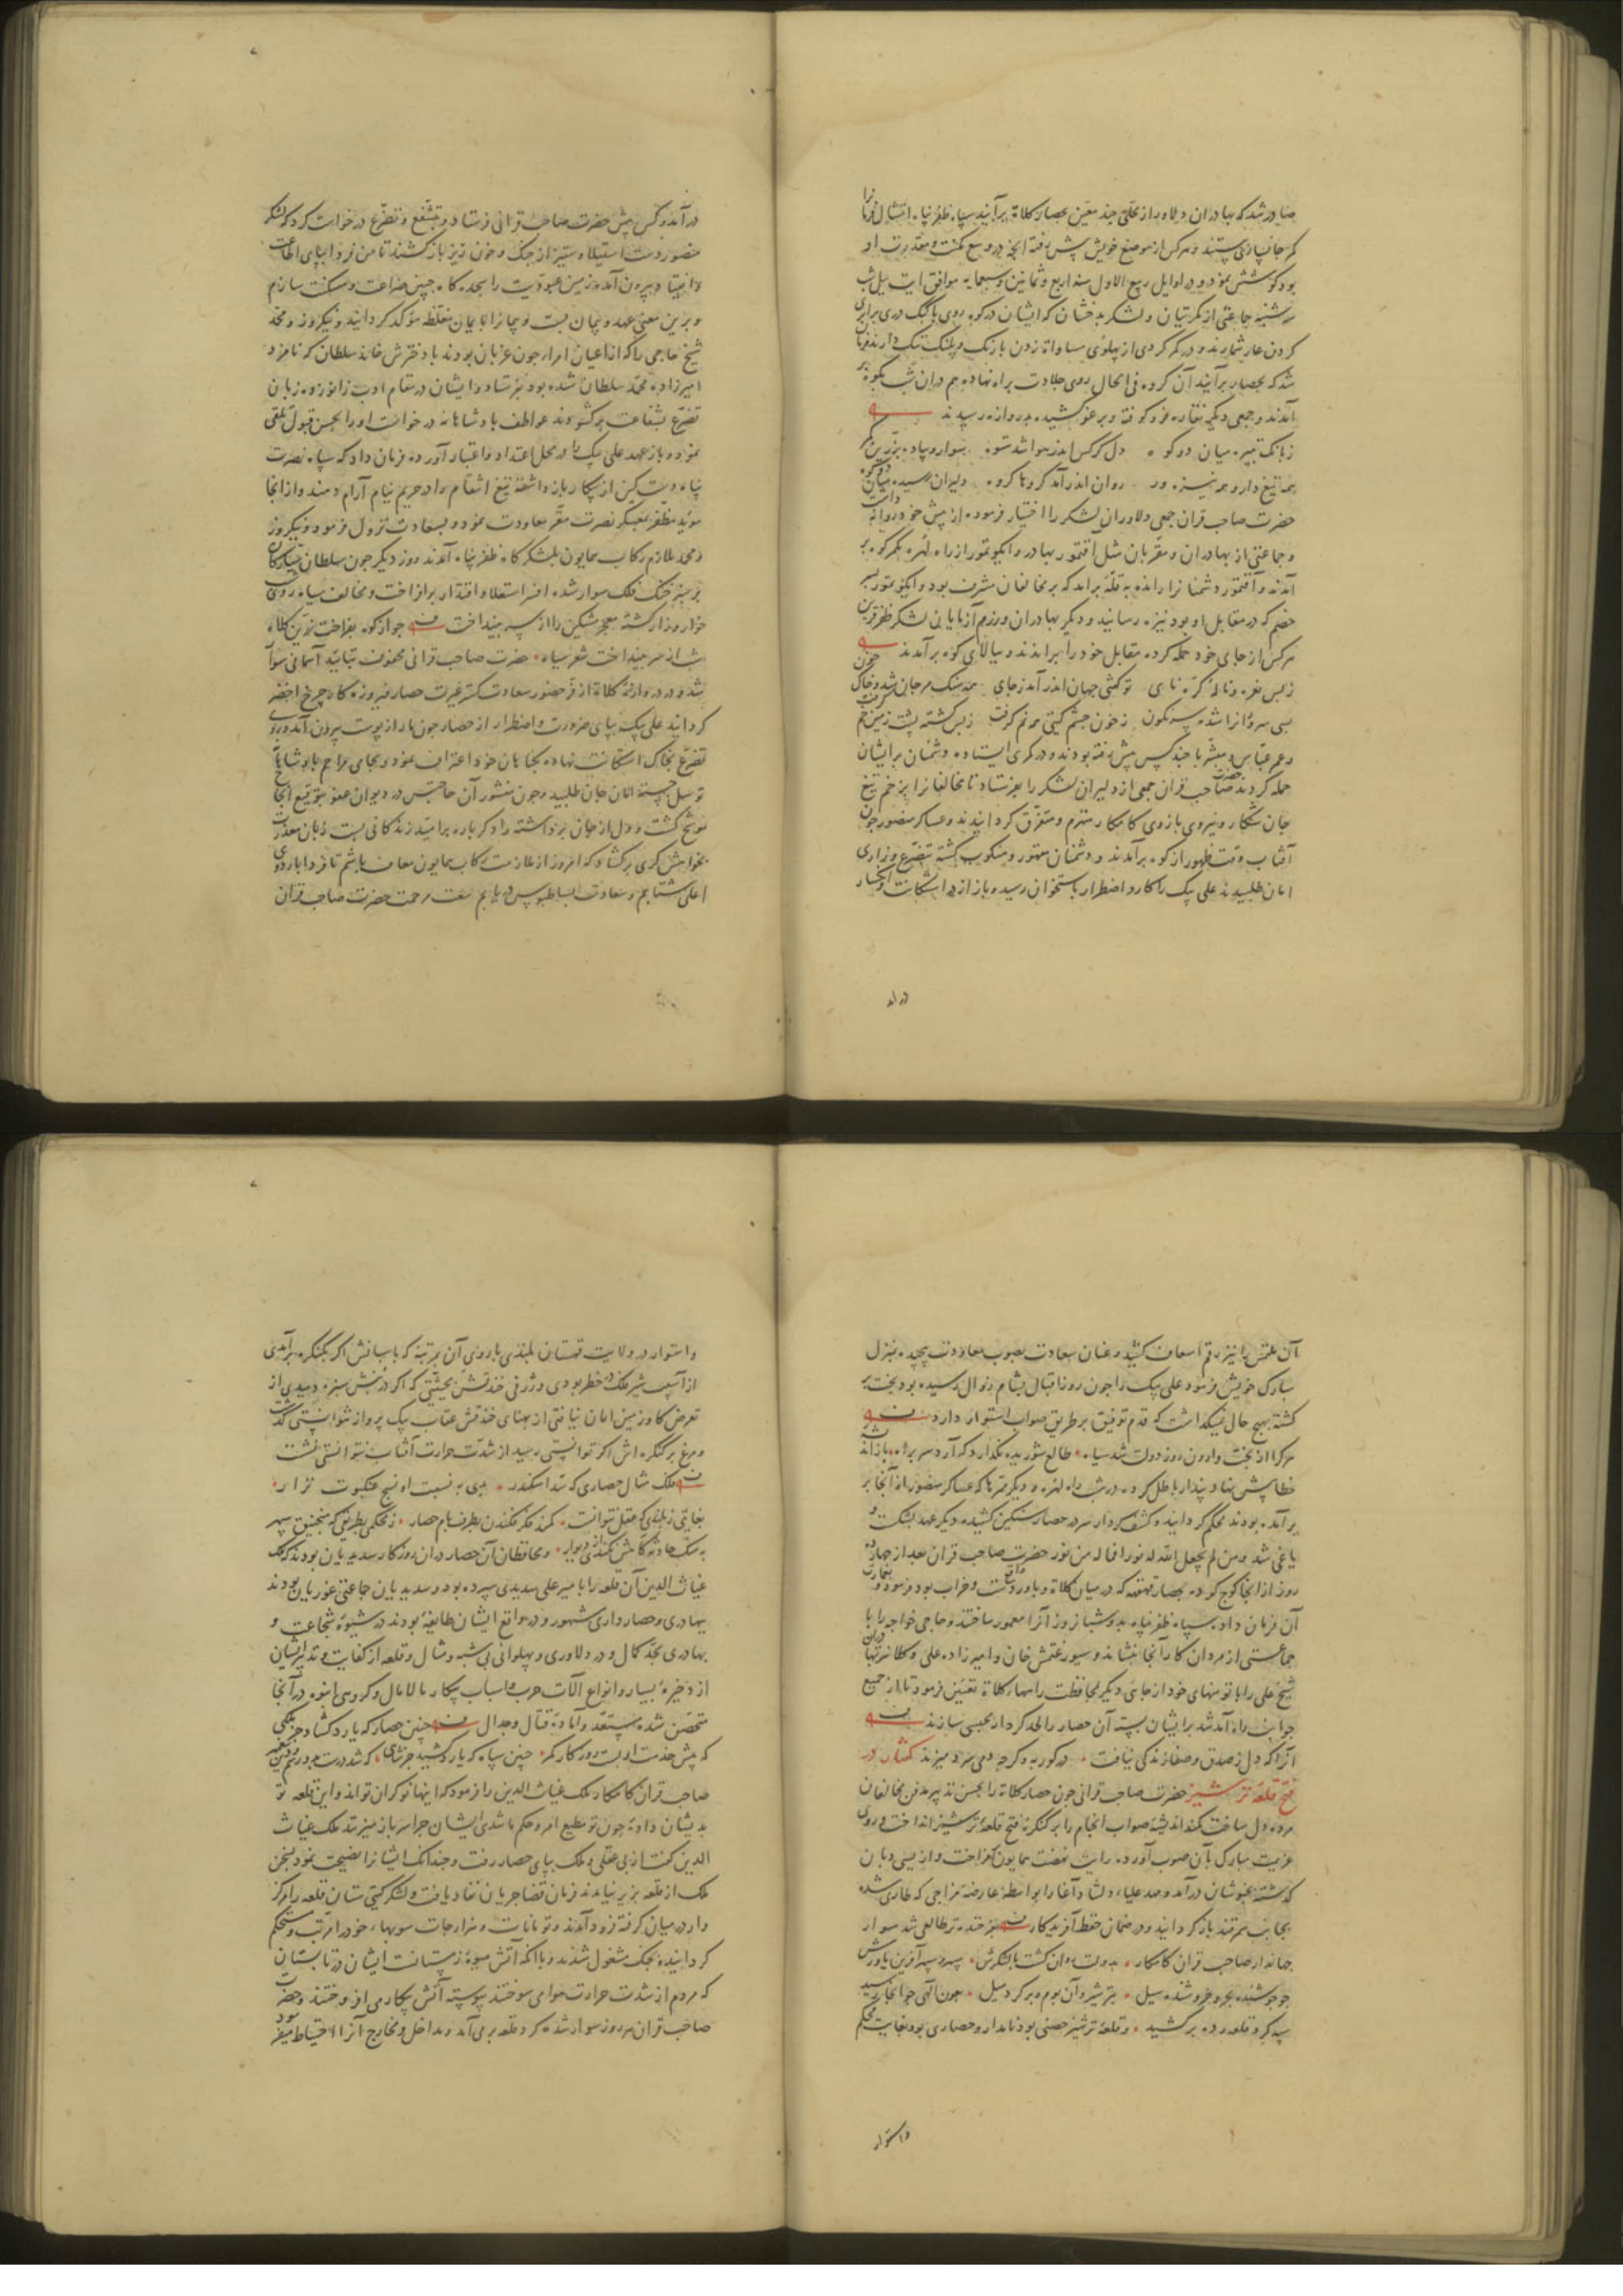 صادر شد که بهادران و دلاوران از محلی چند معین بحصار کلاة برآیند سپاه ظفر پناه امتثال فرمانرا
کمر جانسپاری بستند و هرکس از موضع خویش پیش رفته آنچه در وسع مکنت و مقدرت او
بود کوشش نمود و در اوایل ربیع الاول سنه اربع و ثمانین و سبعمایه موافق ایت ییل شب
سه شنبه جماعتی از مکریتیان و لشکر بدخشان که ایشان در کوه روی با کبک دری برابری
کردن عار شمارند و در کمر کردی از پهلوی مساواة زدن با رنک و پلنک ننک دارند فرمان
شد که بحصار برآیند آن کروه فی الحال روی جلادت براه نهاده هم دران شب بکوه بر
آمدند و جمعی دیکر نقاره فرو کوفته و برغو کشیده بدروازه رسیدند
ز بانک تبیره میان دو کوه دل کرکس اندر هوا شد ستوه سوار و پیاده بزرین کمر
همه تیغ دار و همه نیزه ور روان اندر آمد کروها کروه دلیران رسیده میان دو کوه
حضرت صاحب قران جمعی دلاوران لشکر را اختیار فرموده از پیش خود روانه داشت
و جماعتی از بهادران و مقربان مثل آقتمور بهادر و ایکو تمور از راه لهره بکمر کوه بر
آمدند و آقتمور دشمنا نرا رانده به قلّهٔ براند که بر مخالفان مشرف بود و ایکو تمور بسر
خصم که در مقابل او بود نیزه رسانید و دیکر بهادران و رزم آزمایان لشکر ظفر قرین
هرکس از جای خود حمله کرده مقابل خود را براندند و ببالای کوه برآمدند
ز بس نعره و ناله کرّه نای تو کفتی جهان اندر آمد ز جای همه سنک مرجان شد و خاک خون
بسی سروانرا شده سر نکون ز خون چشم کیتی همه نم کرفت ز بس کشته پشت زمین خم کرفت
و عمر عباس و مبشر با چند کس پیش رفته بودند و در کمری ایستاده دشمنان بر ایشان
حمله کردند حضرت صاحب قران جمعی از دلیران لشکر را بفرستاد تا مخالفانرا بزخم تیغ
جان شکار و نیروی بازوی کامکار منهزم و متفرق کردانیدند و عساکر منصور چون
آفتاب وقت ظهور از کوه برآمدند و دشمنان مقهور و منکوب کشته بتضرع و زاری
امان طلبیدند علی بیک را کارد اضطرار باستخوان رسیده باز از در استکانت و انکسار
در آمد
در آمد و کس پیش حضرت صاحب قرانی فرستاد و بتشفّع و تضرّع درخواست کرد که لشکر
منصور دست استیلا و ستیز از جنک و خون ریز باز کشند تا من فردا بپای اطاعت
و انقیاد بیرون آمده زمین عبودیت را بسجده کاه جبین ضراعت و مسکنت سازم
و برین معنی عهد و پیمان بست و پیمانرا بایمان مغلظه مؤکد کردانید و نیکروز و محمّد
شیخ حاجی را که از اعیان امرا جون غربان بودند با دخترش خانده سلطان که نامزد
امیرزاده محمّد سلطان شده بود بفرستاد و ایشان در مقام ادب زانو زده زبان
تضرّع بشفاعت برکشودند عواطف پادشاهانه درخواست او را بحسن قبول تلقی
نمود و باز عهد علی بیک را در محل اعتداد و اعتبار آورده فرمان داد که سپاه نصرت
پناه دست کین از پیکار باز داشته تیغ انتقام را در حریم نیام آرام دهند و از انجا
مؤید مظفر بمعسکر نصرت مقر معاودت نمود و بسعادت نزول فرمود و نیکروز
و محمد ملازم رکاب همایون بلشکرگاه ظفر پناه آمدند روز دیکر جون سلطان سیارکان
بر سبز خنک فلک سوار شده افسر استعلا و اقتدار برافراخت و مخالف سیاه روی شب
خوار و زار کشته معجر مشکین را از سر بینداخت چو از کوه بفراخت زرین کلاه
شب از سر بینداخت شعر سیاه حضرت صاحب قرانی محفوف بتایید آسمانی سوار
شد و در دروازهٔ کلاة از فرّ حضور سعادت کستر غیرت حصار فیروزه کار چرخ اخضر
کردانید علی بیک بپای ضرورت و اضطرار از حصار جون مار از پوست بیرون آمد و روی
تضرع بخاک استکانت نهاده بکناهان خود اعتراف نمود و بجای مراحم پادشاهانه
توسل جسته امان جان طلبید و چون منشور آن حاجتش در دیوان عفو بتوقیع انجاح
موشح کشت و دل از جان برداشته را دکر باره امید زندکانی بست زبان معذرت
بخواهش کری برکشاد که امروز از ملازمت رکاب همایون معاف باشم تا فردا بار دوی
اعلی شتابم و سعادت بساطبوس دریابم سعت مرحمت حضرت صاحب قران
آن ملتمس را نیز رقم اسعاف کشید و عنان سعادت بصوب معاودت پیچیده بمنزل
مبارک خویش فرمود علی بیک را جون روز اقبال بشام زوال رسیده بود بخت بر
کشته بهیچ حال نمیکذاشت که قدم توفیق بر طریق صواب استوار دارد بیت
هر کرا از بخت وارون روز دولت شد سیاه طالع شوریده نکذارد که آرد سر براه باز اندیشه
خطا پیش نهاد پندار باطل کرده در شب راه لهره و دیکر ممرها که عساکر منصور از آنجا بر
برآمده بودند محکم کردانید و کشف کردار سر در حصار سنکین کشیده دیکر عهد بشکست و
یاغی شد و من لم یجعل الله له نورا فما له من نور حضرت صاحب قران بعد از چهارده
روز از انجا کوچ کرده بحصار قهقهه که در میان کلاة و باورد واقع است و خراب بود فرمود و بعمارت
آن فرمان داد سپاه ظفر پناه بدو شبانروز آنرا معمور ساختند و حاجی خواجه را با
جماعتی از مردان کار آنجا بنشاند و سیورغتمش خان و امیرزاده علی و کلانترتهای دران
شیخ علی را با تومنهای خود از جای دیکر بمحافظت راههای کلاة تعیین فرمود تا از جمیع
جوانب راه آمد شد بر ایشان بسته آن حصار را لحد کردار محبسی سازند بیت
آنرا که دل ز صدق و صفا زندکی نیافت در کور به و کرچه دمی سرد میزند گفتار در
فتح قلعهٔ ترشیز حضرت صاحب قرانی جون حصار کلاة را بحسن تدبیر مدفن مخالفان
مرده دل ساخت کمند اندیشهٔ صواب انجام را بر کنکرهٔ فتح قلعهٔ ترشیز انداخت و روی
عزیمت مبارک بآن صوب آورده رایت نهضت همایون بفراخت و از یسی دبان
کذشته بخبوشان درآمد و مهد علیا دلشاد آغا را بواسطهٔ عارضهٔ مزاجی که طاری شده
بجانب سمرقند باز کردانید و در ضمان حفظ آفریدکار بفرخنده تر طالعی شد سوار
جهاندار صاحب قران کامکار بدولت روان کشت با لشکرش سپهر و سپهر آفرین یاورش
چو جوشنده بحر و خروشنده سیل بترشیز و آن بوم و بر کرد میل بعون آلهی چو آنجا رسید
سپه کرد قلعه رده برکشید و قلعهٔ ترشیز حصنی بود نامدار و حصاری بود بغایت محکم
و استوار
و استوار در ولایت قهستان بلندی باروی آن بمرتبهٔ که پاسبانش اکر بکنکره برآمدی
از آسیب شیر فلک در خطر بودی و ژرفی خندقش بحیثیتی که اکر در بنش سبزه دمیدی از
تعرض کاو زمین امان نیافتی از پهنای خندقش عقاب سبک پرواز نتوانستی کذشت
و مرغ بر کنکره اش اکر توانستی رسید از شدت حرارت آفتاب نتوانستی نشست
بیت فلک مثال حصاری که سدّ اسکندر بدی به نسبت او نسج عنکبوت نزار
بغایتی ز بلندی که عقل نتوانست کمند فکر فکندن بطرف بام حصار ز محکمی بطریقی که منجنیق سپهر
به سنک حادثه کاهش نکندش ز دیوار و محافظان آن حصار دران روزکار سدیدیان بودند که ملک
غیاث الدین آن قلعه را با میر علی سدیدی سپرده بود و سدیدیان جماعتی غوریان بودند
ببهادری و حصار داری مشهور و در واقع ایشان طایفهٔ بودند در شیوهٔ شجاعت و
بهادری بحد کمال و در دلاوری و پهلوانی بی شبه و مثال و قلعه از کفایت و تدبیر ایشان
از ذخیرهٔ بسیار و انواع آلات حرب و اسباب پیکار مالامال و کروهی انبوه در آنجا
متحصن شده مستعد و آمادهٔ قتال و جدال بیت چنین حصار که یارد کشاد جز ملکی
که پیش خدمت او بست روزکار کمر چنین سپاه که یارد کشید جز شاهی
صاحب قران کامکار ملک غیاث الدین را فرمود که اینها نوکران تواند و این قلعه تو
بدیشان دادهٔ چون تو مطیع امر و حکم ما شدی ایشان چرا سر باز میزنند ملک غیاث
الدین کفت از بی عقلی و ملک بپای حصار رفت و چندانک ایشانرا نصیحت نمود بسخن
ملک از قلعه بزیر نیامدند فرمان قضا جریان نفاد یافت و لشکر کیتی ستان قلعه را مرکز
وار در میان کرفته فرود آمدند و تومانات و هزارجات سویها خود را مرتب و مستحکم
کردانیده بجنک مشغول شدند و با آنکه آتش میوهٔ زمستانست ایشان در تابستان
که مردم از شدت حرارت هوا می سوختند پیوسته آتش پیکار می افروختند و حضرت
صاحب قران هر روز سوار شده کرد قلعه بر می آمد و مداخل و مخارج آنرا احتیاط میفرمود